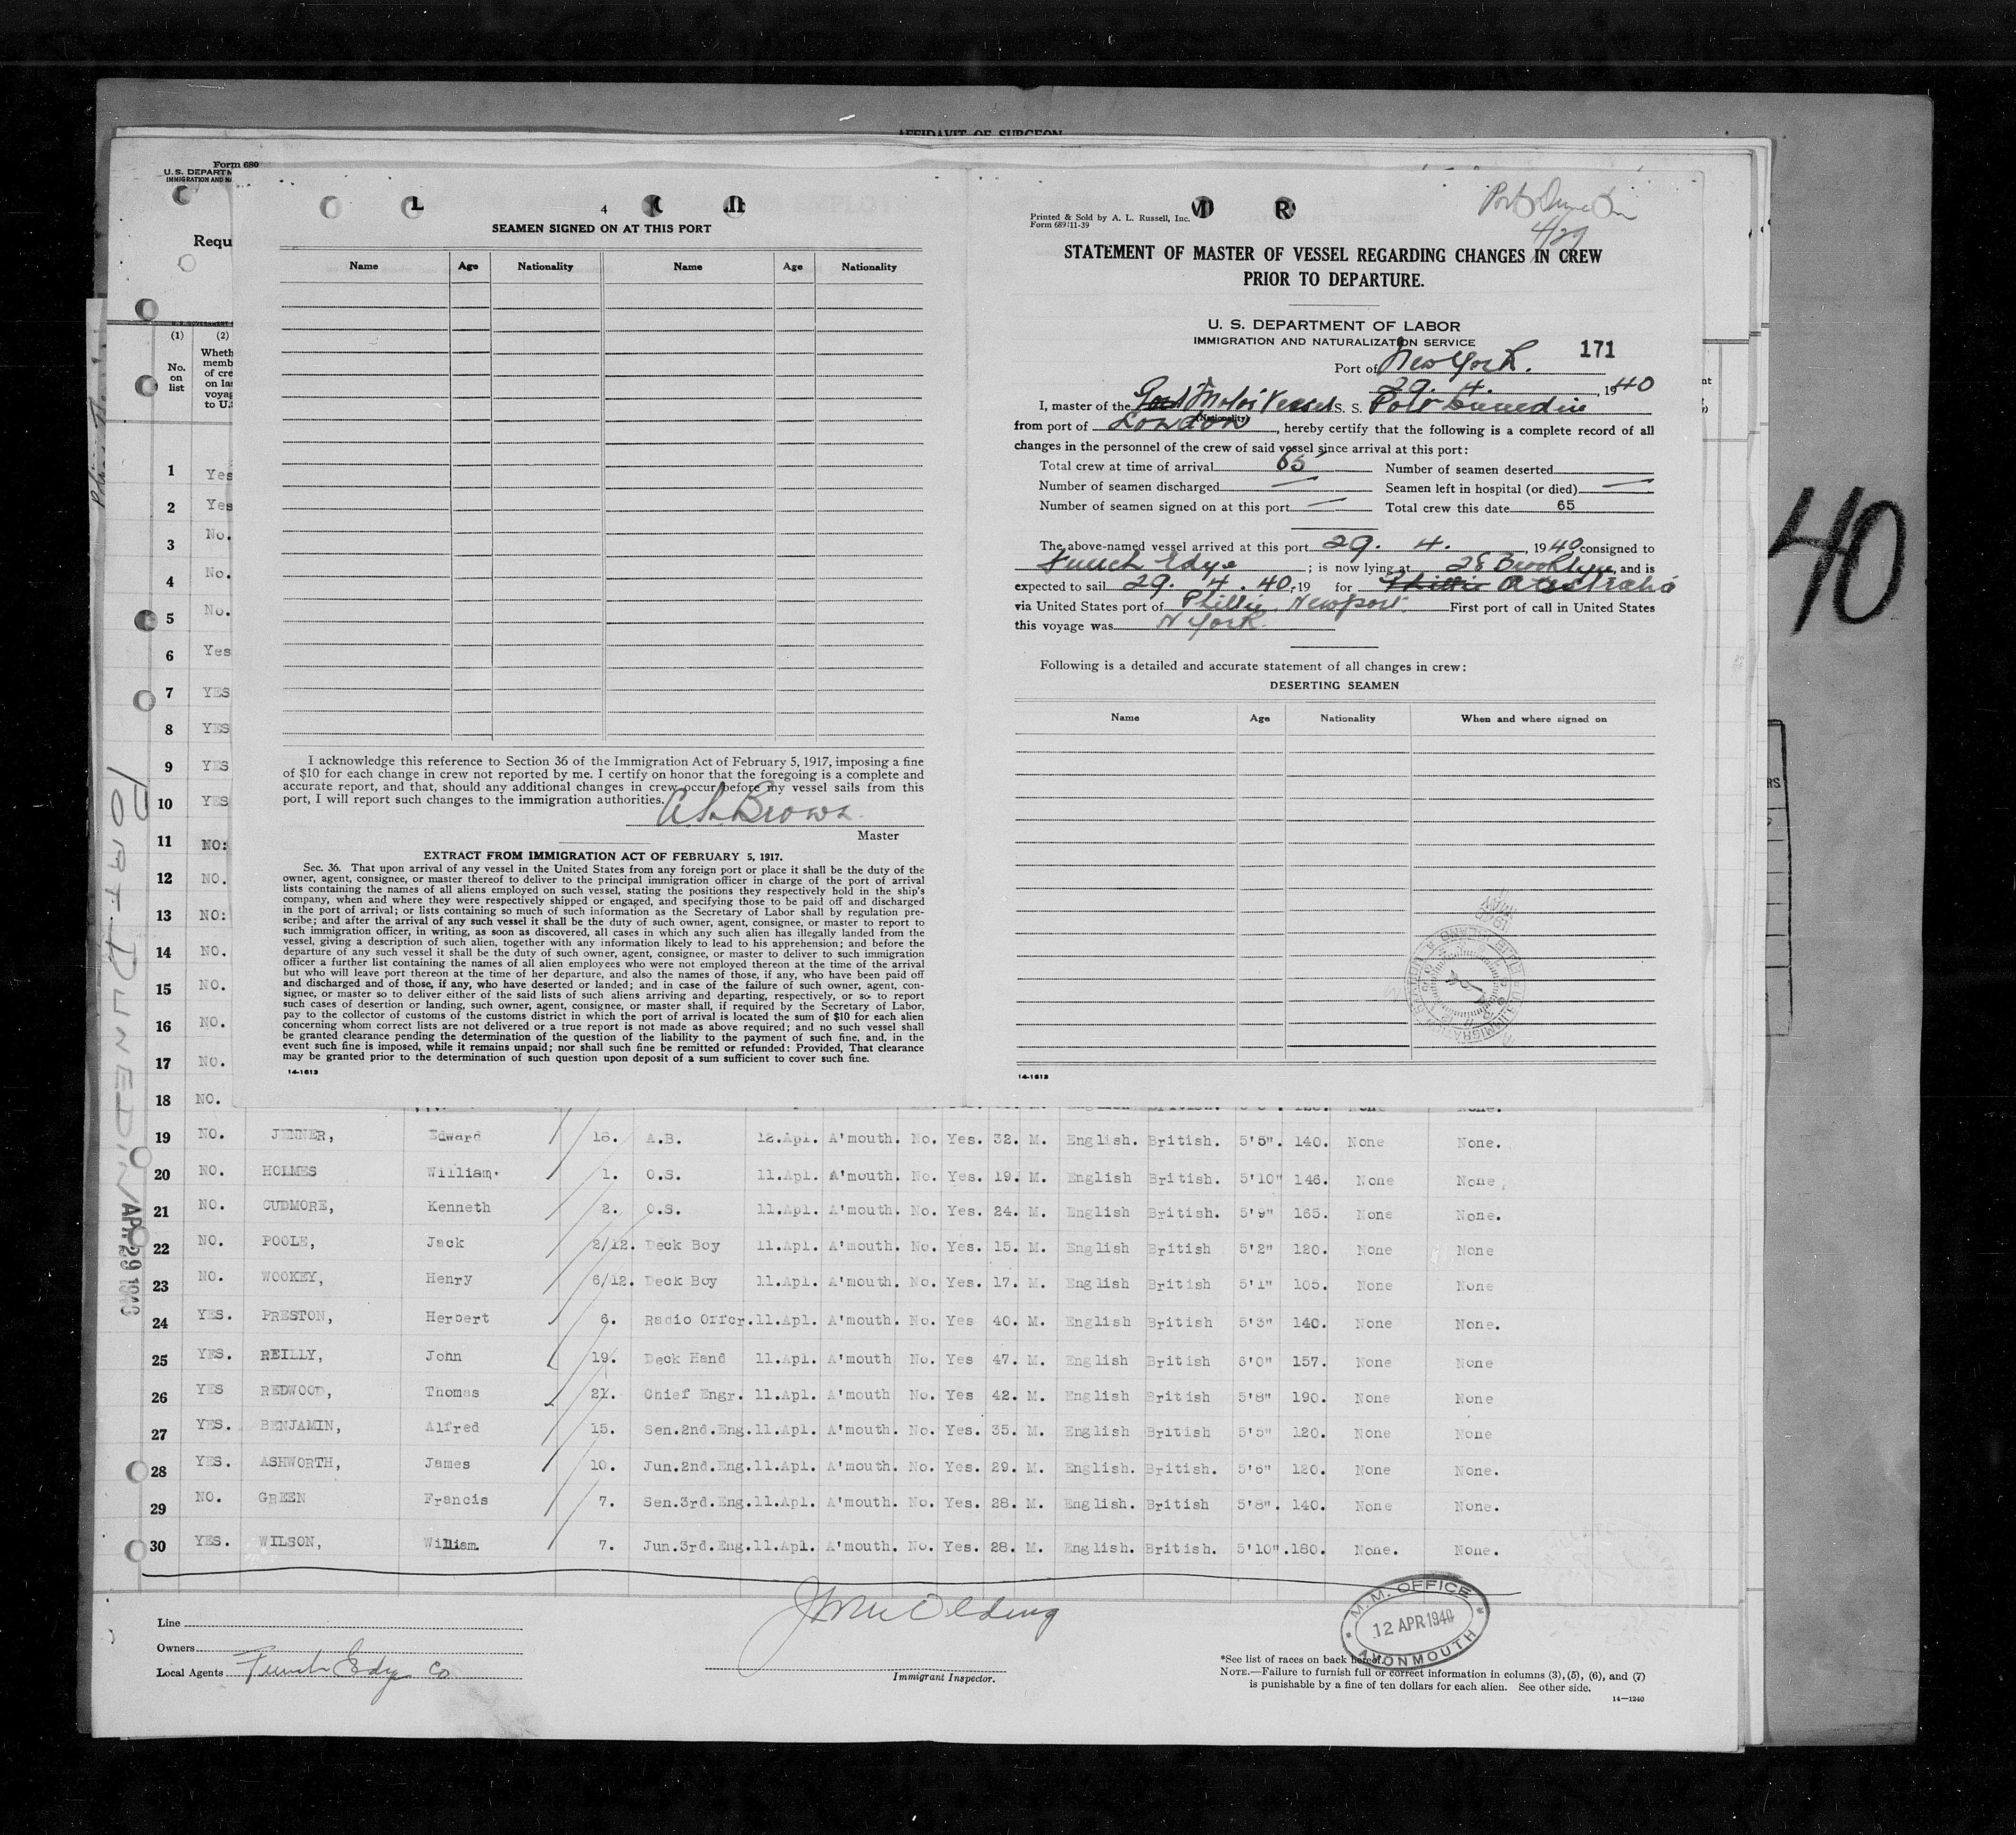 AFFIDAVIT OF SURGEON
Form 680
U. S. DEPARTM
IMMIGRATION AND NA
Requ
(1) (2)
No. on list
Wheth
memb
of cre
on las
voyag
to U.
1 Yes
2 Yes
3 No.
4 No.
5 No.
6 Yes
7 YES
8 YES
9 YES
10 YES
11 NO:
12 NO.
13 NO:
14 NO.
15 NO.
16 NO.
17 NO.
18 NO.
PORT DUNEDIN
APR 29 1940
4
SEAMEN SIGNED ON AT THIS PORT
Name Age Nationality Name Age Nationality
I acknowledge this reference to Section 36 of the Immigration Act of February 5, 1917, imposing a fine
of $10 for each change in crew not reported by me. I certify on honor that the foregoing is a complete and
accurate report, and that, should any additional changes in crew occur before my vessel sails from this
port, I will report such changes to the immigration authorities.
A. S. Brown
Master
EXTRACT FROM IMMIGRATION ACT OF FEBRUARY 5, 1917.
Sec. 36. That upon arrival of any vessel in the United States from any foreign port or place it shall be the duty of the
owner, agent, consignee, or master thereof to deliver to the principal immigration officer in charge of the port of arrival
lists containing the names of all aliens employed on such vessel, stating the positions they respectively hold in the ship's
company, when and where they were respectively shipped or engaged, and specifying those to be paid off and discharged
in the port of arrival; or lists containing so much of such information as the Secretary of Labor shall by regulation pre-
scribe; and after the arrival of any such vessel it shall be the duty of such owner, agent, consignee, or master to report to
such immigration officer, in writing, as soon as discovered, all cases in which any such alien has illegally landed from the
vessel, giving a description of such alien, together with any information likely to lead to his apprehension; and before the
departure of any such vessel it shall be the duty of such owner, agent, consignee, or master to deliver to such immigration
officer a further list containing the names of all alien employees who were not employed thereon at the time of the arrival
but who will leave port thereon at the time of her departure, and also the names of those, if any, who have been paid off
and discharged and of those, if any, who have deserted or landed; and in case of the failure of such owner, agent, con-
signee, or master so to deliver either of the said lists of such aliens arriving and departing, respectively, or so to report
such cases of desertion or landing, such owner, agent, consignee, or master shall, if required by the Secretary of Labor,
pay to the collector of customs of the customs district in which the port of arrival is located the sum of $10 for each alien
concerning whom correct lists are not delivered or a true report is not made as above required; and no such vessel shall
be granted clearance pending the determination of the question of the liability to the payment of such fine, and, in the
event such fine is imposed, while it remains unpaid; nor shall such fine be remitted or refunded: Provided, That clearance
may be granted prior to the determination of such question upon deposit of a sum sufficient to cover such fine.
14-1613
Port Dunedin
4/29
Printed & Sold by A. L. Russell, Inc.
Form 689:11-39
STATEMENT OF MASTER OF VESSEL REGARDING CHANGES IN CREW
PRIOR TO DEPARTURE.
U. S. DEPARTMENT OF LABOR
IMMIGRATION AND NATURALIZATION SERVICE
171
Port of New York.
29. 4. , 1940
I, master of the Motor Vessel S. S. Port Dunedin
(Nationality)
from port of London, hereby certify that the following is a complete record of all
changes in the personnel of the crew of said vessel since arrival at this port:
Total crew at time of arrival 65 Number of seamen deserted
Number of seamen discharged — Seamen left in hospital (or died) —
Number of seamen signed on at this port — Total crew this date 65
The above-named vessel arrived at this port 29. 4. , 1940 consigned to
Funch Edye ; is now lying at 28 Brooklyn, and is
expected to sail 29. 4. 40, 19 for Phillie Australia
via United States port of Phillie. Newport. First port of call in United States
this voyage was N York.
Following is a detailed and accurate statement of all changes in crew:
DESERTING SEAMEN
Name Age Nationality When and where signed on
14-1613
40
19 NO. JENNER, Edward 16. A.B. 12.Apl. A'mouth. No. Yes. 32. M. English. British. 5'5". 140. None None.
20 NO. HOLMES William. 1. O.S. 11.Apl. A'mouth. No. Yes. 19. M. English British. 5'10" 146. None None.
21 NO. CUDMORE, Kenneth 2. O.S. 11.Apl. A'mouth. No. Yes. 24. M. English British. 5'9" 165. None None.
22 NO. POOLE, Jack 2/12. Deck Boy 11.Apl. A'mouth. No. Yes. 15. M. English British 5'2" 120. None None
23 NO. WOOKEY, Henry 6/12. Deck Boy 11.Apl. A'mouth. No. Yes. 17. M. English British 5'1" 105. None None
24 YES. PRESTON, Herbert 6. Radio Offcr. 11.Apl. A'mouth. No. Yes 40. M. English British 5'3" 140. None None.
25 YES. REILLY, John 19. Deck Hand 11.Apl. A'mouth No. Yes 47. M. English British 6'0" 157. None None
26 YES REDWOOD, Thomas 21. Chief Engr. 11.Apl. A'mouth No. Yes 42. M. English British 5'8" 190. None None
27 YES. BENJAMIN, Alfred 15. Sen.2nd.Eng. 11.Apl. A'mouth. No. Yes. 35. M. English British 5'5" 120. None None
28 YES. ASHWORTH, James 10. Jun.2nd.Eng. 11.Apl. A'mouth. No. Yes. 29. M. English. British. 5'6" 120. None None.
29 NO. GREEN Francis 7. Sen.3rd.Eng. 11.Apl. A'mouth. No. Yes. 28. M. English. British 5'8". 140. None None.
30 YES. WILSON, William. 7. Jun.3rd.Eng. 11.Apl. A'mouth. No. Yes. 28. M. English. British. 5'10". 180. None. None.
Line
Owners
Local Agents Funch Edye Co
Immigrant Inspector.
M. M. OFFICE
12 APR 1940
AVONMOUTH
*See list of races on back hereof.
NOTE.—Failure to furnish full or correct information in columns (3), (5), (6), and (7)
is punishable by a fine of ten dollars for each alien. See other side.
14—1240